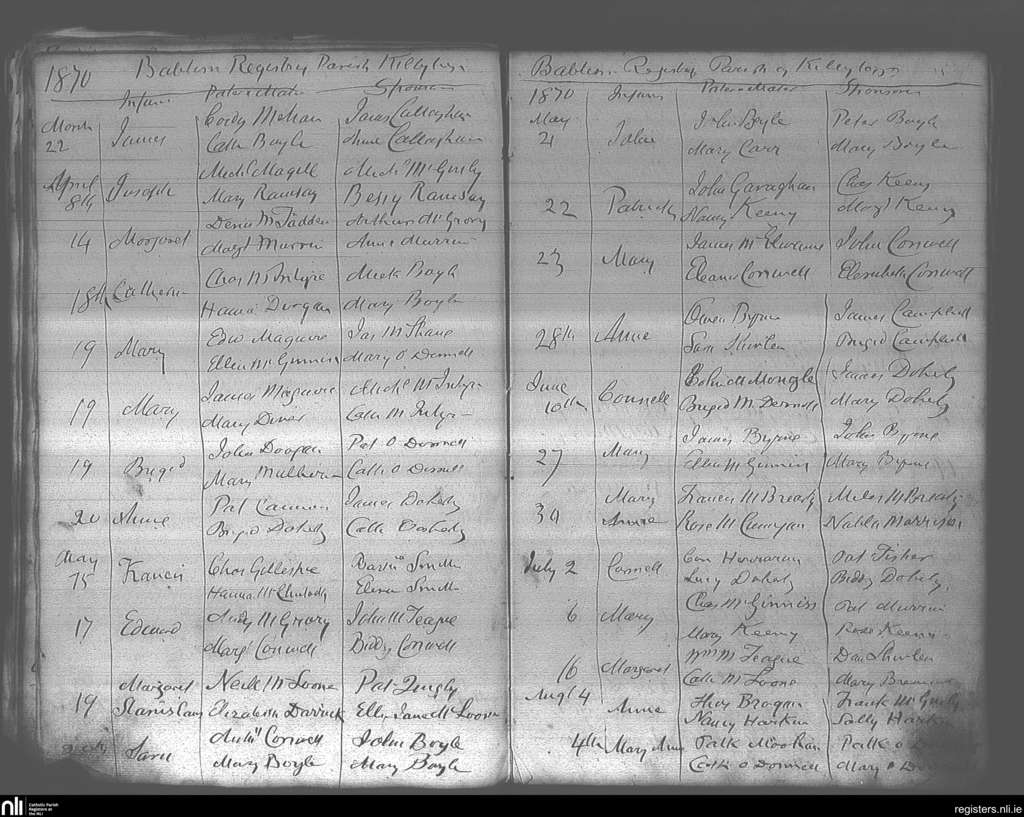 1870 Babtism Registry Parish Killytogs
Infans Pater &amp; Mater Sponsors
March Cordy Mehan James Callaghan
22 James Cath Boyle Anne Callaghan
April Michl Magill Michl McGinly
8th Joseph Mary Ramsay Bessy Ramsay
Denis McFadden Arthur McGrory
14 Margaret Margt Murrin Anne Murrin
Chas McIntyre Mick Boyle
18th Catherine Hanna Dorgan Mary Boyle
Edwd Maguire Jas McShane
19 Mary Ellen McGinniss Mary O Donnell
James Maguire Michl McIntyre
19 Mary Mary Diver Cath McIntyre
John Doogan Pat O Donnell
19 Brigid Mary Mulhern Cath O Donnell
Pat Cannon James Doherty
20 Anne Brigid Doherty Cath Doherty
May Chas Gillespie Smith
15 Francis Hannah Elenor Smith
Andy McGrory John McTeague
17 Edward Margt Conwell Biddy Conwell
Margaret Neele McLoone Pat Quigly
19 Stanislaus Elizabeth Darrick Ellen Jane McLoone
Anthy Conwell John Boyle
Sara Mary Boyle Mary Boyle
Babtism Registry Parish of Killytogs
1870 Infans Pater &amp; Mater Sponsors
May John Boyle Peter Boyle
21 John Mary Carr Mary Boyle
John Gavaghan Chas Keeny
22 Patrick Nancy Keeny Margt Keeny
James McElwaine John Conwell
23 Mary Eleanor Conwell Elesabeth Conwell
Owen Byrne James Campbell
28th Anne Sara Brigid Campbell
June Mongle James Doherty
10th Connell Brigid McDermott Mary Doherty
James Byrne John Byrne
27 Mary Ellen McGinniss Mary Byrne
Mary Francis McBrearty Miles McBrearty
30 Annie Rose McCunigan Nabla Morrison
Con Houraran Pat Fisher
July 2 Connell Lucy Doherty Biddy Doherty
Chas McGinniss Pat Murrin
6 Mary Mary Keeny Rose Keeny
Wm McTeague Dan
16 Margaret Cath McLoone Mary
Augt 4 Anne Hugh Brogan Frank McGinly
Nancy Harkin Sally Harkin
4th Mary Anne Patk Meehan Patk O
Cath O Donnell Mary O
nli Catholic Parish
Registers at
the NLI
registers.nli.ie